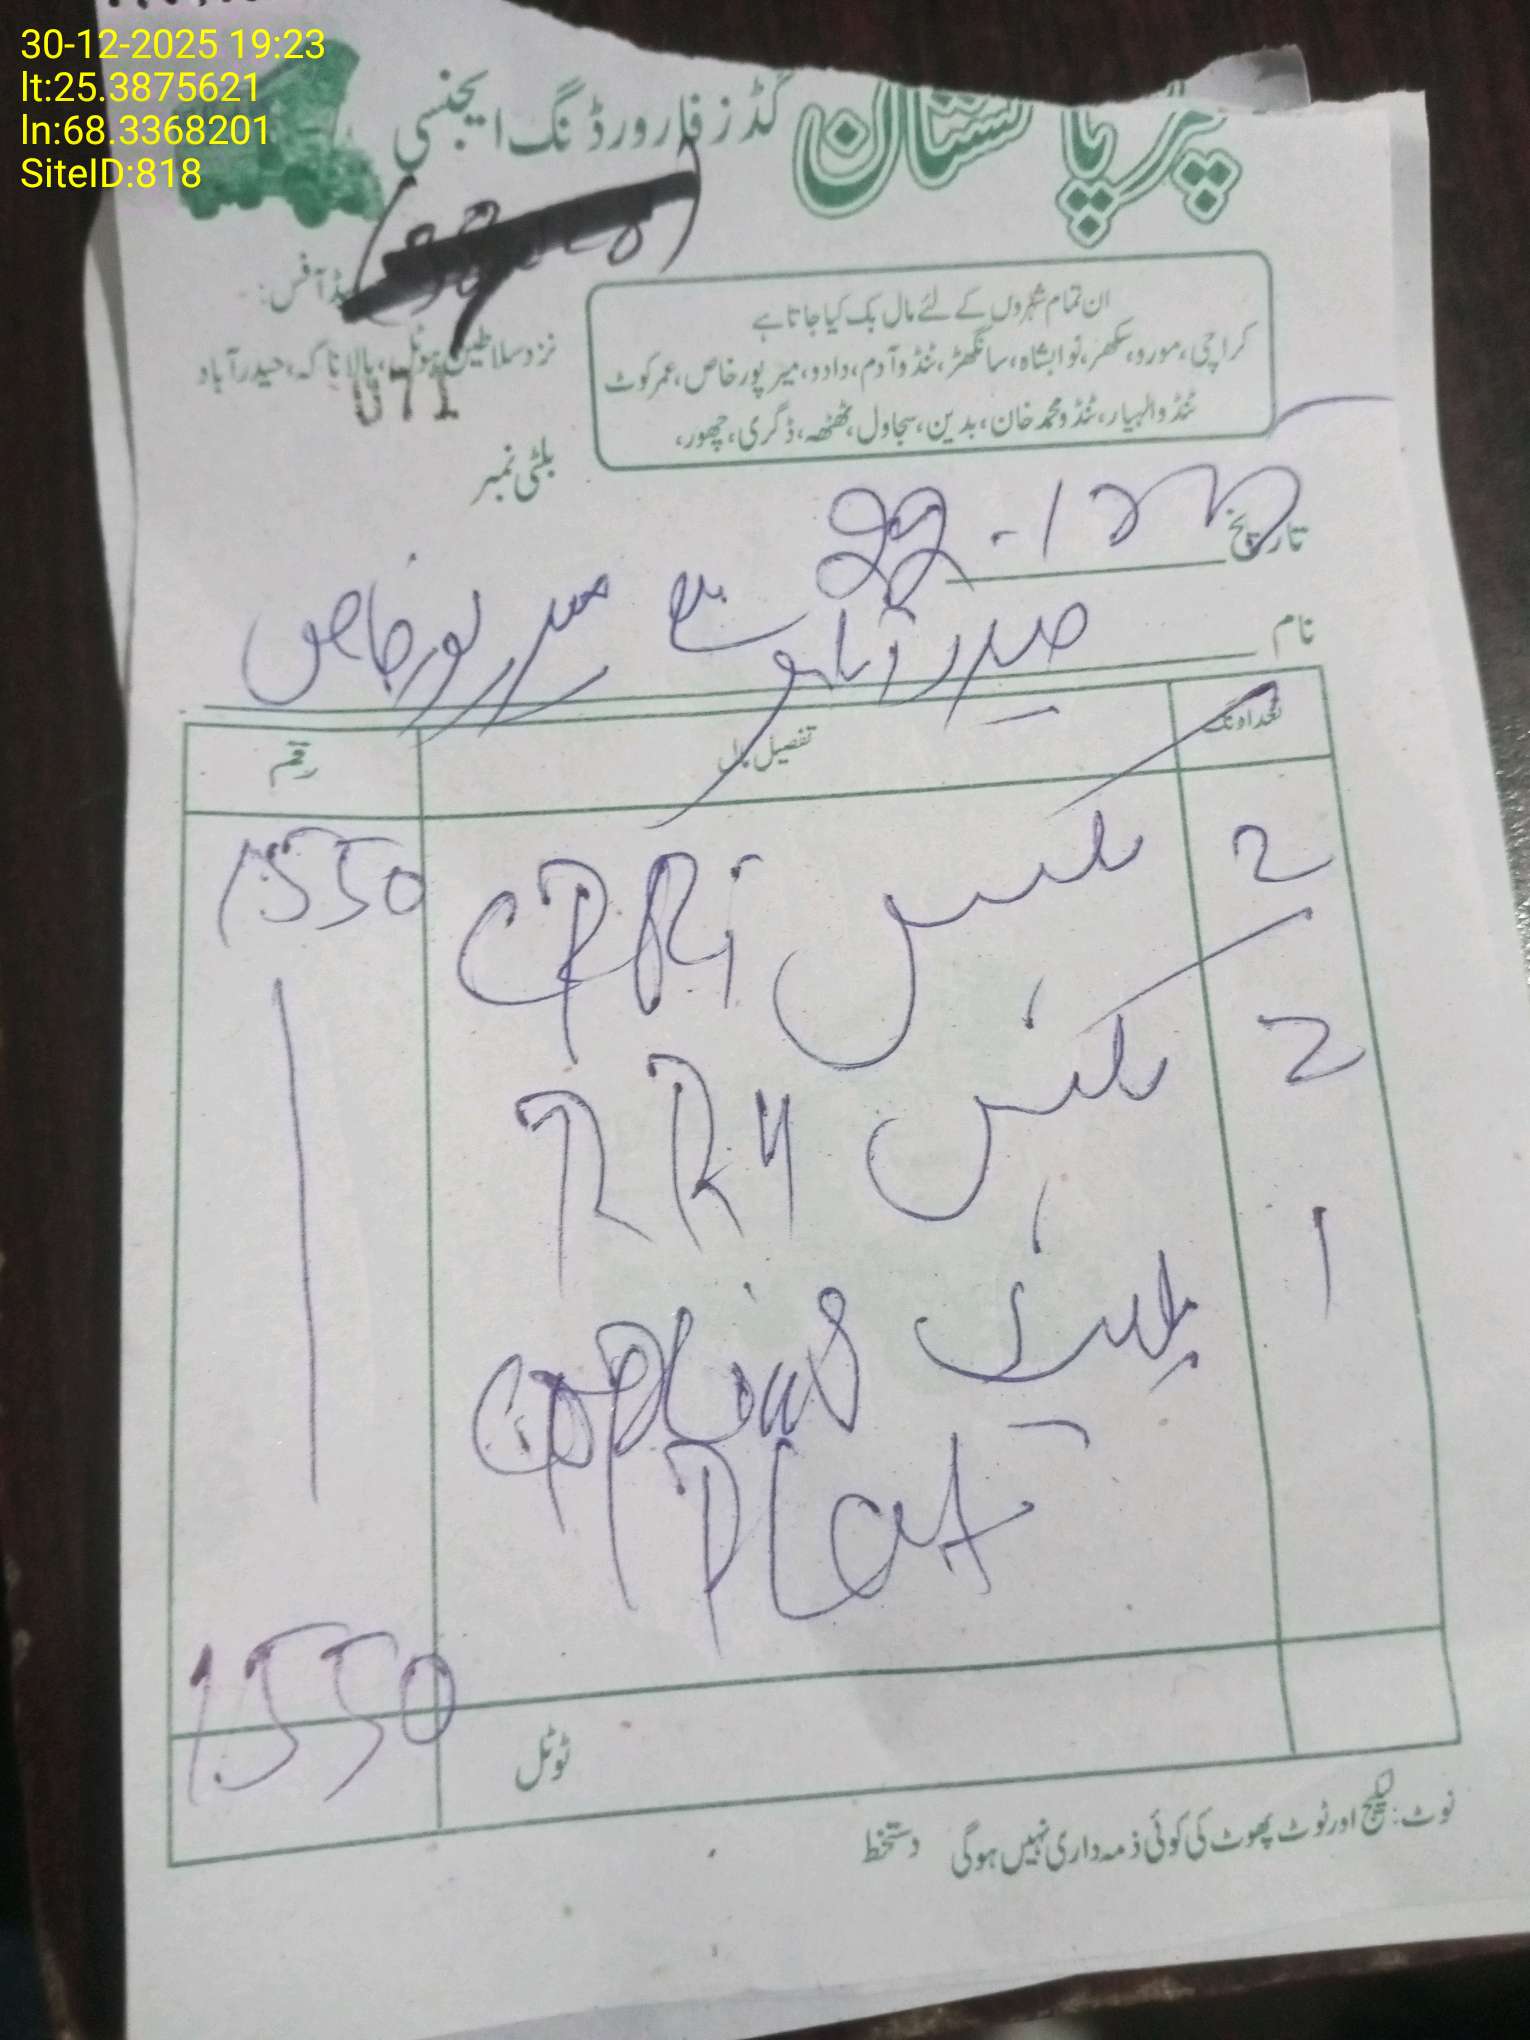 30-12-2025 19:23
lt:25.3875621
ln:68.3368201
SiteID:818
پاکستان گڈز فارورڈنگ ایجنسی
ان تمام شہروں کے لئے مال بک کیا جاتا ہے
کراچی، مورو، سکھر، نوابشاہ، سانگھڑ، ٹنڈوآدم، دادو، میرپورخاص، عمرکوٹ
ٹنڈوالہیار، ٹنڈومحمدخان، بدین، سجاول، ٹھٹھہ، ڈگری، چھور،
ہیڈ آفس:
نزد سلاطین ہوٹل، ہالا ناکہ، حیدرآباد
071
بلٹی نمبر
تاریخ 22-12
نام حیدرآباد سے میرپورخاص
تعداد نگ تفصیل مال رقم
2 بکس CPRi 1550
2 بکس RRY
1 پلیٹ
PLat
ٹوٹل 1550
نوٹ: لیکج اور ٹوٹ پھوٹ کی کوئی ذمہ داری نہیں ہوگی دستخط